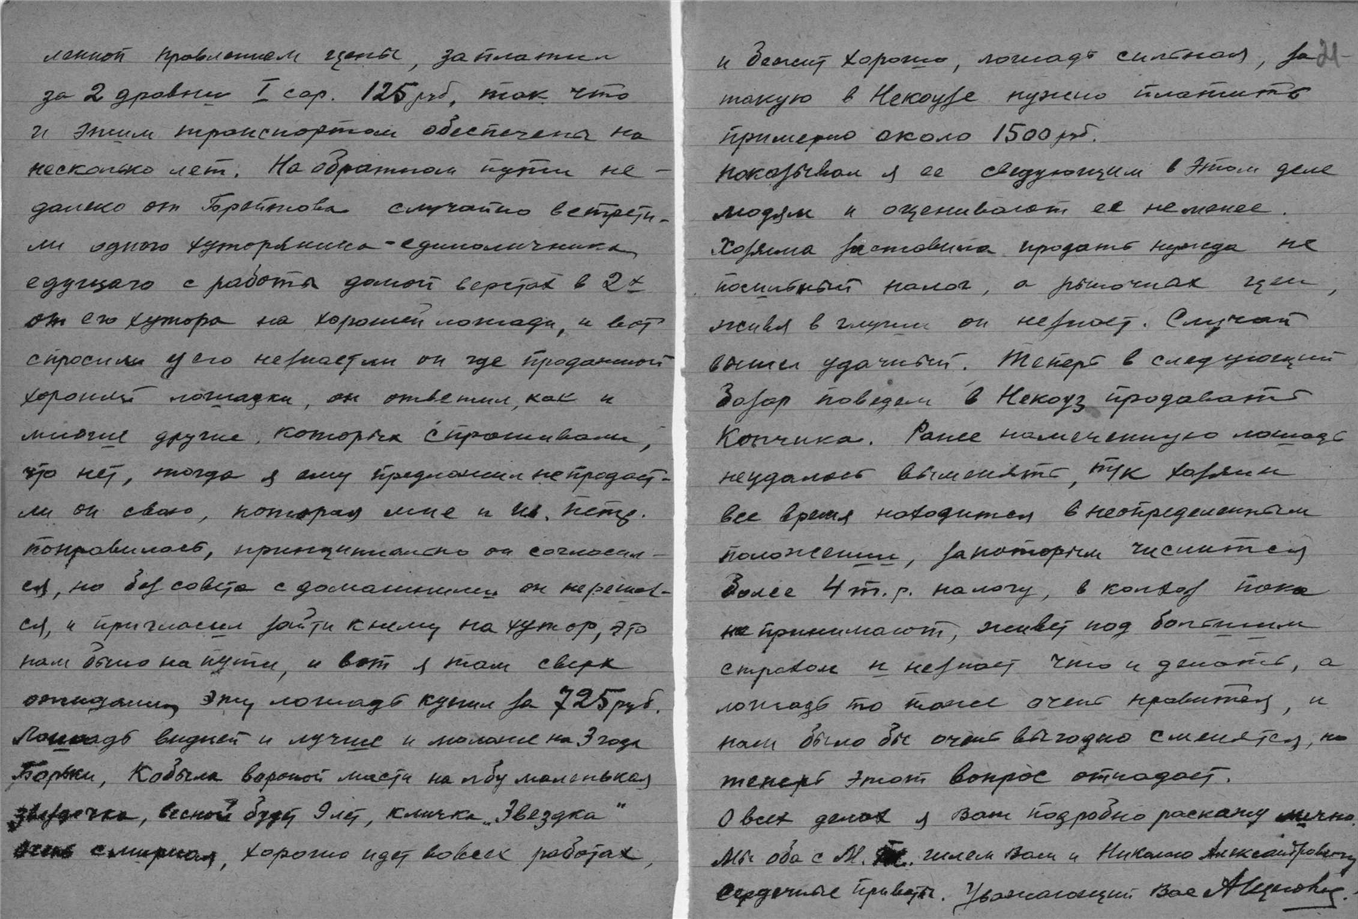 ленной правлением цены, заплатил
за 2 дровни I сор. 125 руб, так что
и этим транспортом обеспечены на
несколько лет. На обратном пути не-
далеко от случайно встрети-
ли одного хуторянина-единоличника
едущаго с работы домой верстах в 2х
от его хутора на хорошей лошади, и вот
спросили у его незнает ли он где продажной
хорошей лошадки, он ответил, как и
многие другие, которых спрашивали,
что нет, тогда я ему предложил непродаст-
ли он свою, которая мне и Ив. Петр.
понравилась, принципиально он согласил-
ся, но без совета с домашними он нерешал-
ся, и пригласил зайти к нему на хутор, это
нам было на пути, и вот я там сверх
ожидания эту лошадь купил за 725 руб.
Лошадь видней и лучше и моложе на 3 года
Борьки, Кобыла вороной масти на лбу маленькая
звездочка, весной будет 9 лет, кличка „Звездка"
очень смирная, хорошо идет во всех работах,
21
и бежит хорошо, лошадь сильная, за
такую в Некоузе нужно платить
примерно около 1500 руб.
показывал я ее сведующим в этом деле
людям и оценивают ее неменее.
Хозяина заставила продать нужда не
посильный налог, а рыночных цен,
живя в глуши он незнает. Случай
вышел удачный. Теперь в следующий
базар поведем в Некоуз продавать
Копчика. Ранее намеченную лошадь
неудалось выменять, т.к хозяин
все время находится в неопределенным
положении, за которым числится
более 4 т.р. налогу, в колхоз пока
не принимают, живет под большим
страхом и незнает что и делать, а
лошадь то тоже очень нравится, и
нам было бы очень выгодно сменятся, но
теперь этот вопрос отпадает.
О всех делах я Вам подробно раскажу лично.
Мы оба с М. шлем Вам и Николаю Александровичу
сердечные приветы. Уважающий Вас